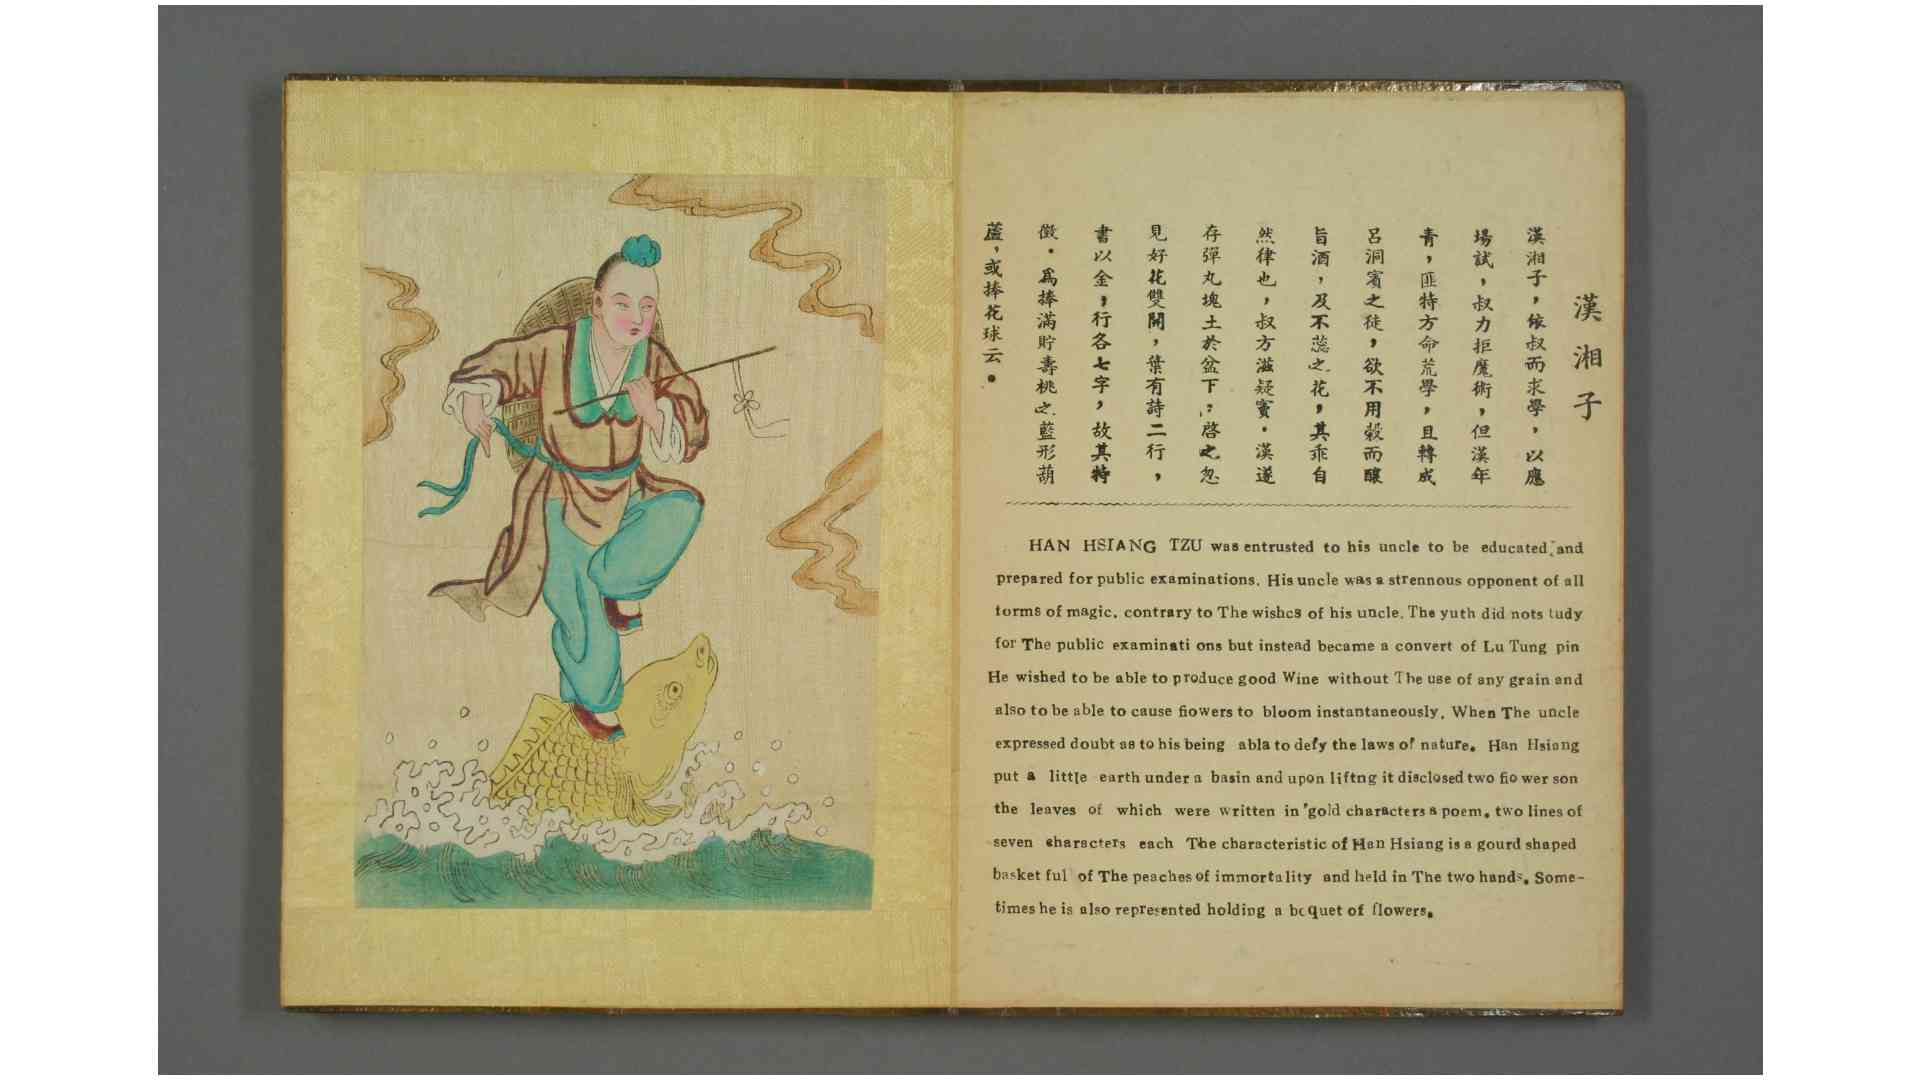 漢湘子
漢湘子，依叔而求學，以應
場試，叔力拒魔術，但漢年
青，匪特方命荒學，且轉成
呂洞賓之徒，欲不用穀而釀
旨酒，及不蕊之花，其乖自
然律也，叔方滋疑竇．漢遂
存彈丸塊土於盆下，啓之忽
見好花雙開，葉有詩二行，
書以金，行各七字，故其特
徵．爲捧滿貯壽桃之籃形葫
蘆，或捧花球云．
HAN HSIANG TZU was entrusted to his uncle to be educated and
prepared for public examinations. His uncle was a strennous opponent of all
torms of magic. contrary to The wishes of his uncle. The yuth did nots tudy
for The public examinati ons but instead became a convert of Lu Tung pin
He wished to be able to produce good Wine without The use of any grain and
also to be able to cause fiowers to bloom instantaneously. When The uncle
expressed doubt as to his being abla to defy the laws of nature. Han Hsiang
put a little earth under a basin and upon liftng it disclosed two fio wer son
the leaves of which were written in gold characters a poem. two lines of
seven characters each The characteristic of Han Hsiang is a gourd shaped
basket ful of The peaches of immortality and held in The two hands. Some-
times he is also represented holding a boquet of flowers.